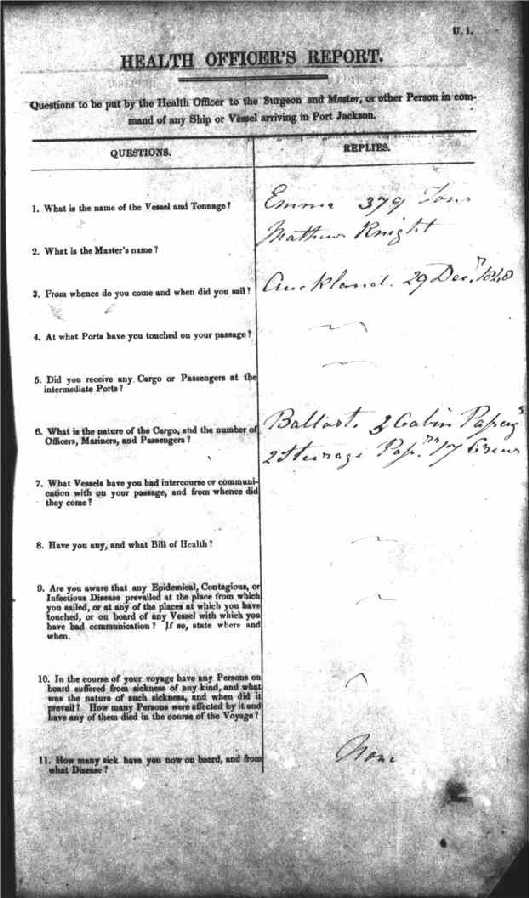 U. 1.
HEALTH OFFICER'S REPORT.
Questions to be put by the Health Officer to the Surgeon and Master, or other Person in com-
mand of any Ship or Vessel arriving in Port Jackson.
QUESTIONS.
REPLIES.
1. What is the name of the Vessel and Tonnage?
Emma 379 Tons
2. What is the Master's name?
Mathew Knight
3. From whence do you come and when did you sail?
Auckland. 29 Decr.
4. At what Ports have you touched on your passage?
5. Did you receive any Cargo or Passengers at the
intermediate Ports?
6. What is the nature of the Cargo, and the number of
Officers, Mariners, and Passengers?
Ballast. 3 Cabin
2 Steerage 17
7. What Vessels have you had intercourse or communi-
cation with on your passage, and from whence did
they come?
8. Have you any, and what Bill of Health?
9. Are you aware that any Epidemical, Contagious, or
Infectious Disease prevailed at the place from which
you sailed, or at any of the places at which you have
touched, or on board of any Vessel with which you
have had communication? If so, state where and
when.
10. In the course of your voyage have any Persons on
board suffered from sickness of any kind, and what
was the nature of such sickness, and when did it
prevail? How many Persons were affected by it and
have any of them died in the course of the Voyage?
11. How many sick have you now on board, and from
what Disease?
None